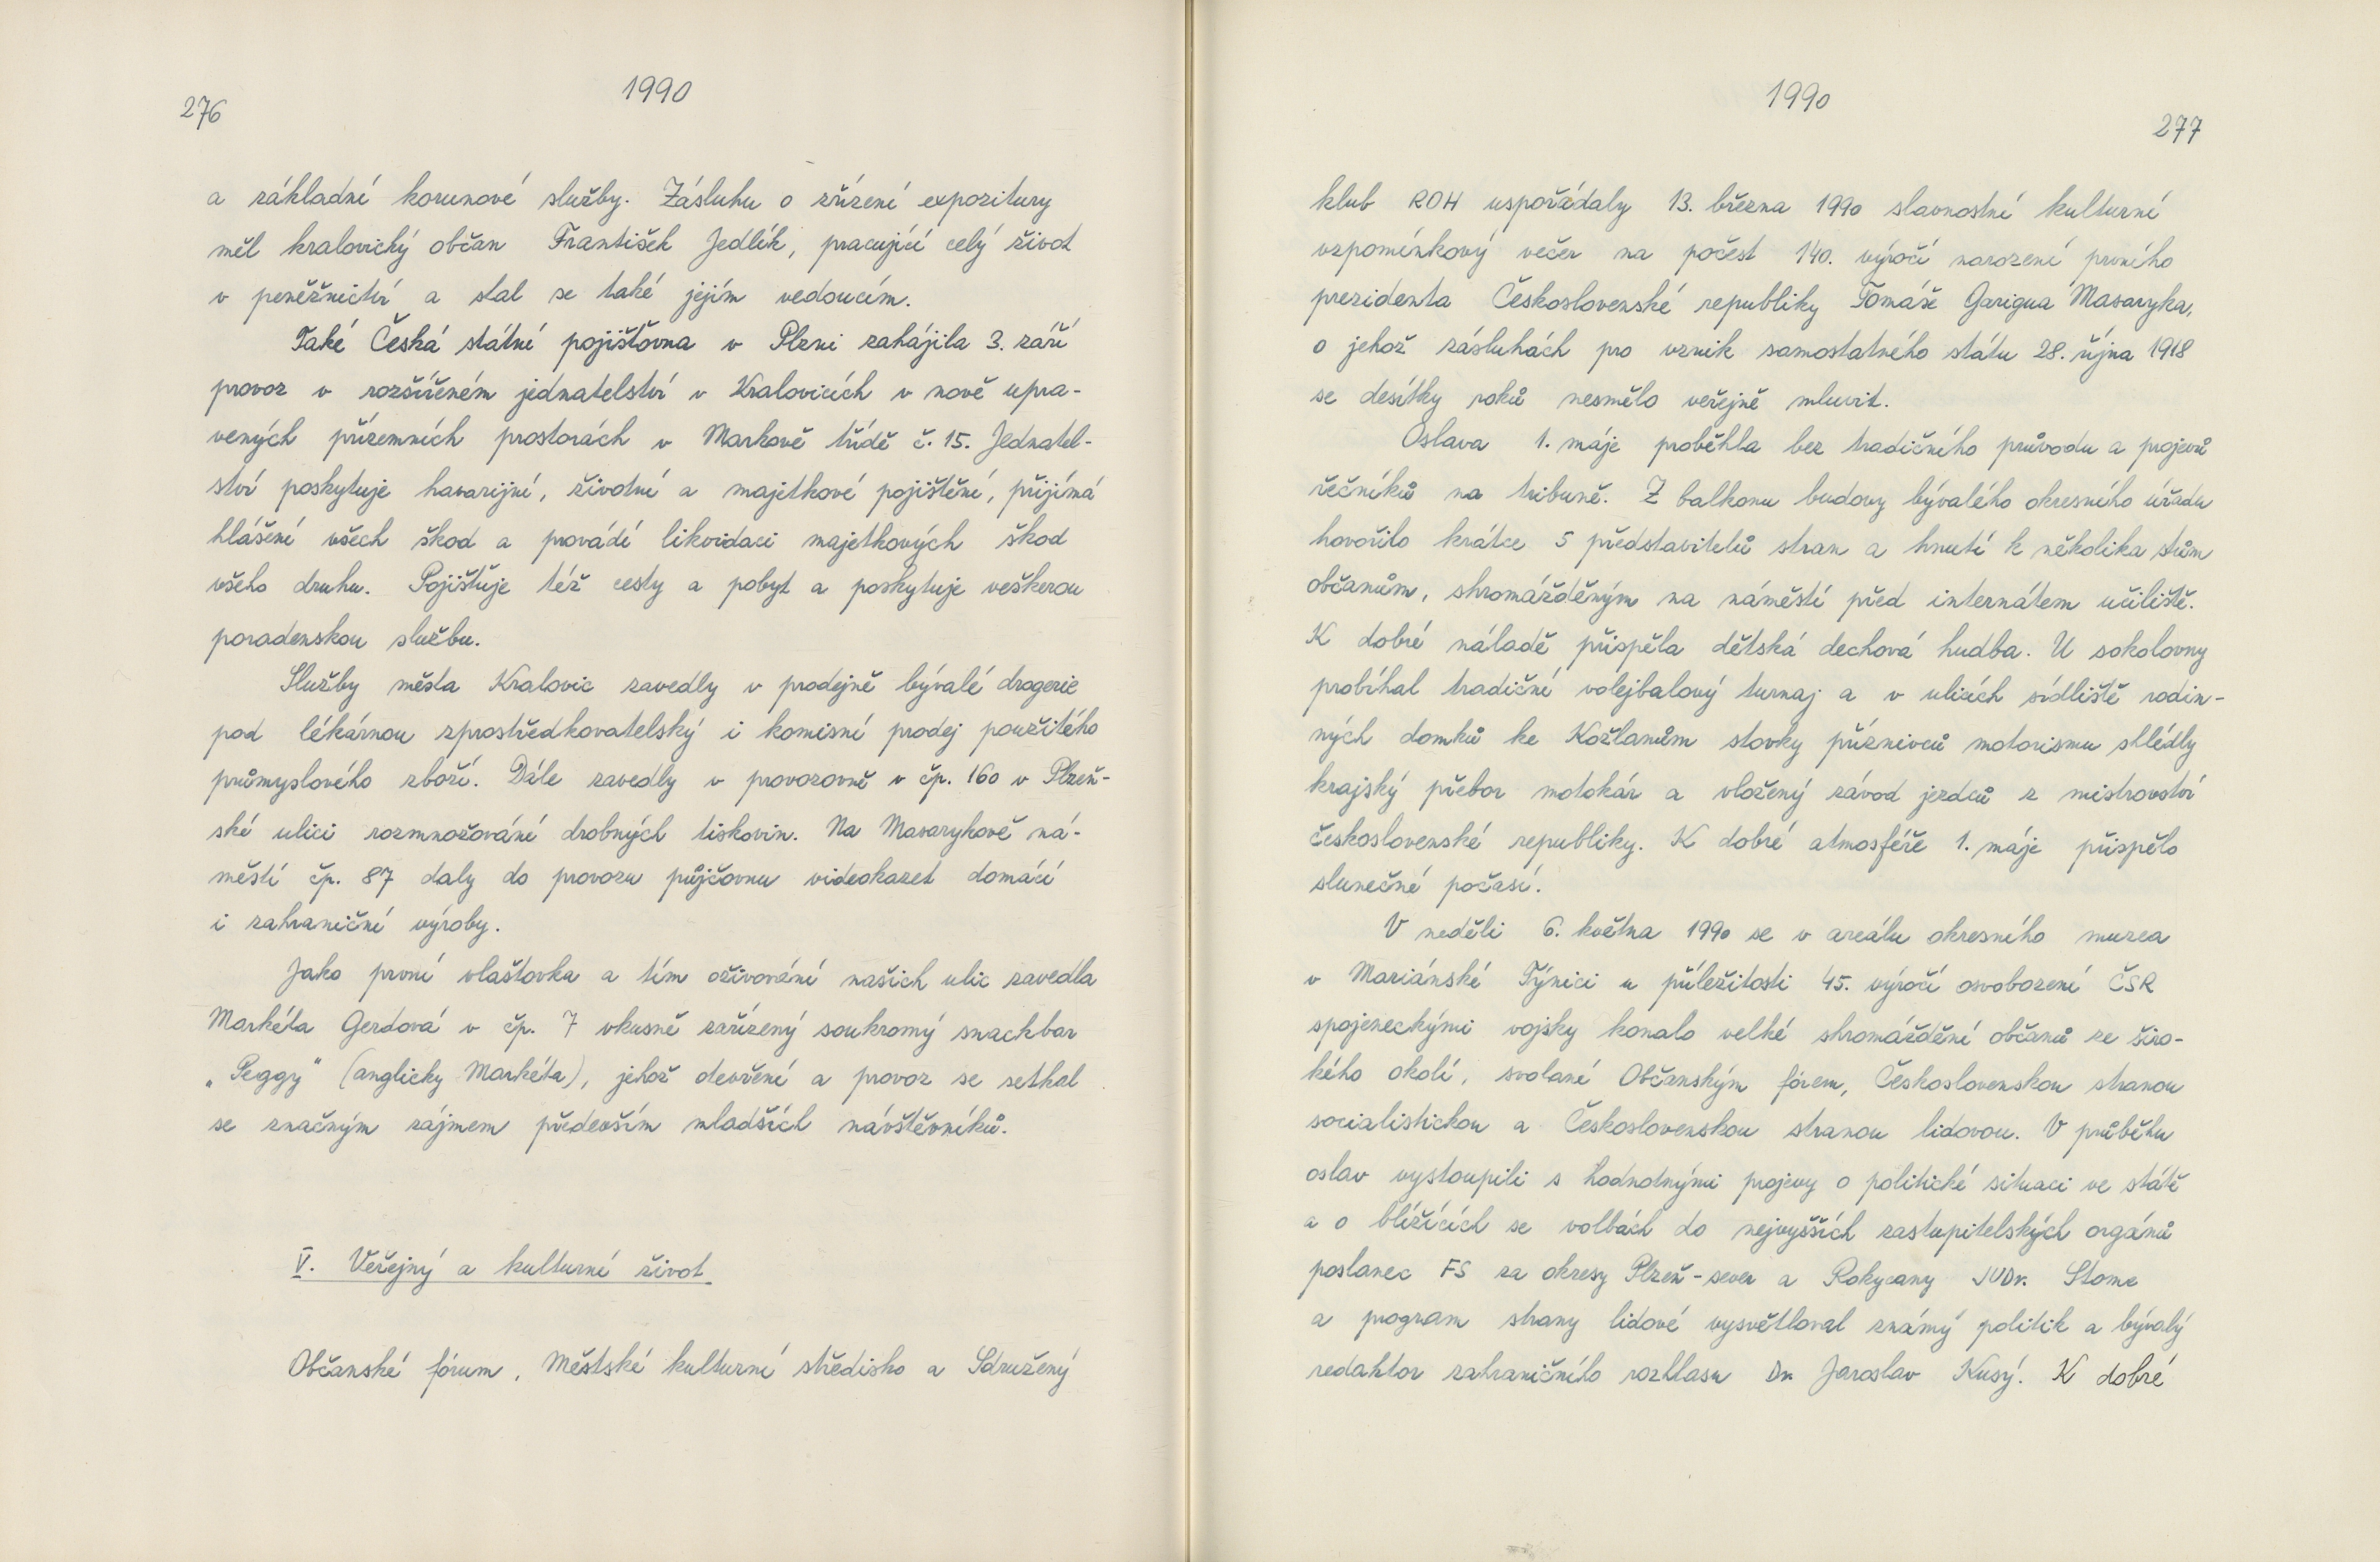 276
1990
a základní korunové služby. Zásluhu o zřízení expozitury
měl kralovický občan František Jedlík, pracující celý život
v peněžnictví a stal se také jejím vedoucím.
Také Česká státní pojišťovna v Plzni zahájila 3. září
provoz v rozšířeném jednatelství v Kralovicích v nově upra-
vených přízemních prostorách v Markově třídě č. 15. Jednatel-
ství poskytuje havarijní, životní a majetkové pojištění, přijímá
hlášení všech škod a provádí likvidaci majetkových škod
všeho druhu. Pojišťuje též cesty a pobyt a poskytuje veškerou
poradenskou službu.
Služby města Kralovic zavedly v prodejně bývalé drogerie
pod lékárnou zprostředkovatelský i komisní prodej použitého
průmyslového zboží. Dále zavedly v provozovně v čp. 160 v Plzeň-
ské ulici rozmnožování drobných tiskovin. Na Masarykově ná-
městí čp. 87 daly do provozu půjčovnu videokazet domácí
i zahraniční výroby.
Jako první vlaštovka a tím oživování našich ulic zavedla
Markéta Gerdová v čp. 7 vkusně zařízený soukromý snackbar
„Peggy“ (anglicky Markéta), jehož otevření a provoz se setkal
se značným zájmem především mladších návštěvníků.
V. Veřejný a kulturní život
Občanské fórum, Městské kulturní středisko a Sdružený
1990
277
klub ROH uspořádaly 13. března 1990 slavnostní kulturní
vzpomínkový večer na počest 140. výročí narození prvního
prezidenta Československé republiky Tomáše Garigua Masaryka,
o jehož zásluhách pro vznik samostatného státu 28. října 1918
se desítky roků nesmělo veřejně mluvit.
Oslava 1. máje proběhla bez tradičního průvodu a projevů
řečníků na tribuně. Z balkonu budovy bývalého okresního úřadu
hovořilo krátce 5 představitelů stran a hnutí k několika stům
občanům, shromážděným na náměstí před internátem učiliště.
K dobré náladě přispěla dětská dechová hudba. U sokolovny
probíhal tradiční volejbalový turnaj a v ulicích sídliště rodin-
ných domků ke Kožlanům stovky příznivců motorismu shlédly
krajský přebor motokár a vložený závod jezdců z mistrovství
československé republiky. K dobré atmosféře 1. máje přispělo
slunečné počasí.
V neděli 6. května 1990 se v areálu okresního muzea
v Mariánské Týnici u příležitosti 45. výročí osvobození ČSR
spojeneckými vojsky konalo velké shromáždění občanů ze širo-
kého okolí, svolané Občanským fórem, Československou stranou
socialistickou a Československou stranou lidovou. V průběhu
oslav vystoupili s hodnotnými projevy o politické situaci ve státě
a o blížících se volbách do nejvyšších zastupitelských orgánů
poslanec FS za okresy Plzeň-sever a Rokycany JUDr. Stome
a program strany lidové vysvětloval známý politik a bývalý
redaktor zahraničního rozhlasu Dr. Jaroslav Kusý. K dobré